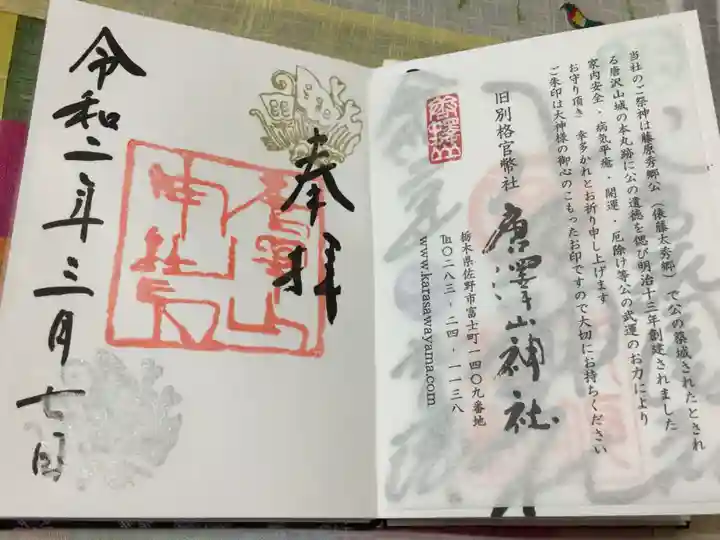 当社のご祭神は藤原秀郷公（俵藤太秀郷）で公の築城されたとされ
る唐沢山城の本丸跡に公の遺徳を偲び明治十三年創建されました
家内安全・病気平癒・開運・厄除け等公の武運のお力により
お守り頂き 幸多かれとお祈り申し上げます
ご朱印は大神様の御心のこもったお印ですので大切にお持ちください
旧別格官幣社 唐澤山神社
栃木県佐野市富士町一四〇九番地
℡〇二八三-二四-一一三八
www.karasawayama.com
奉拝
唐澤山
神社
令和二年三月七日